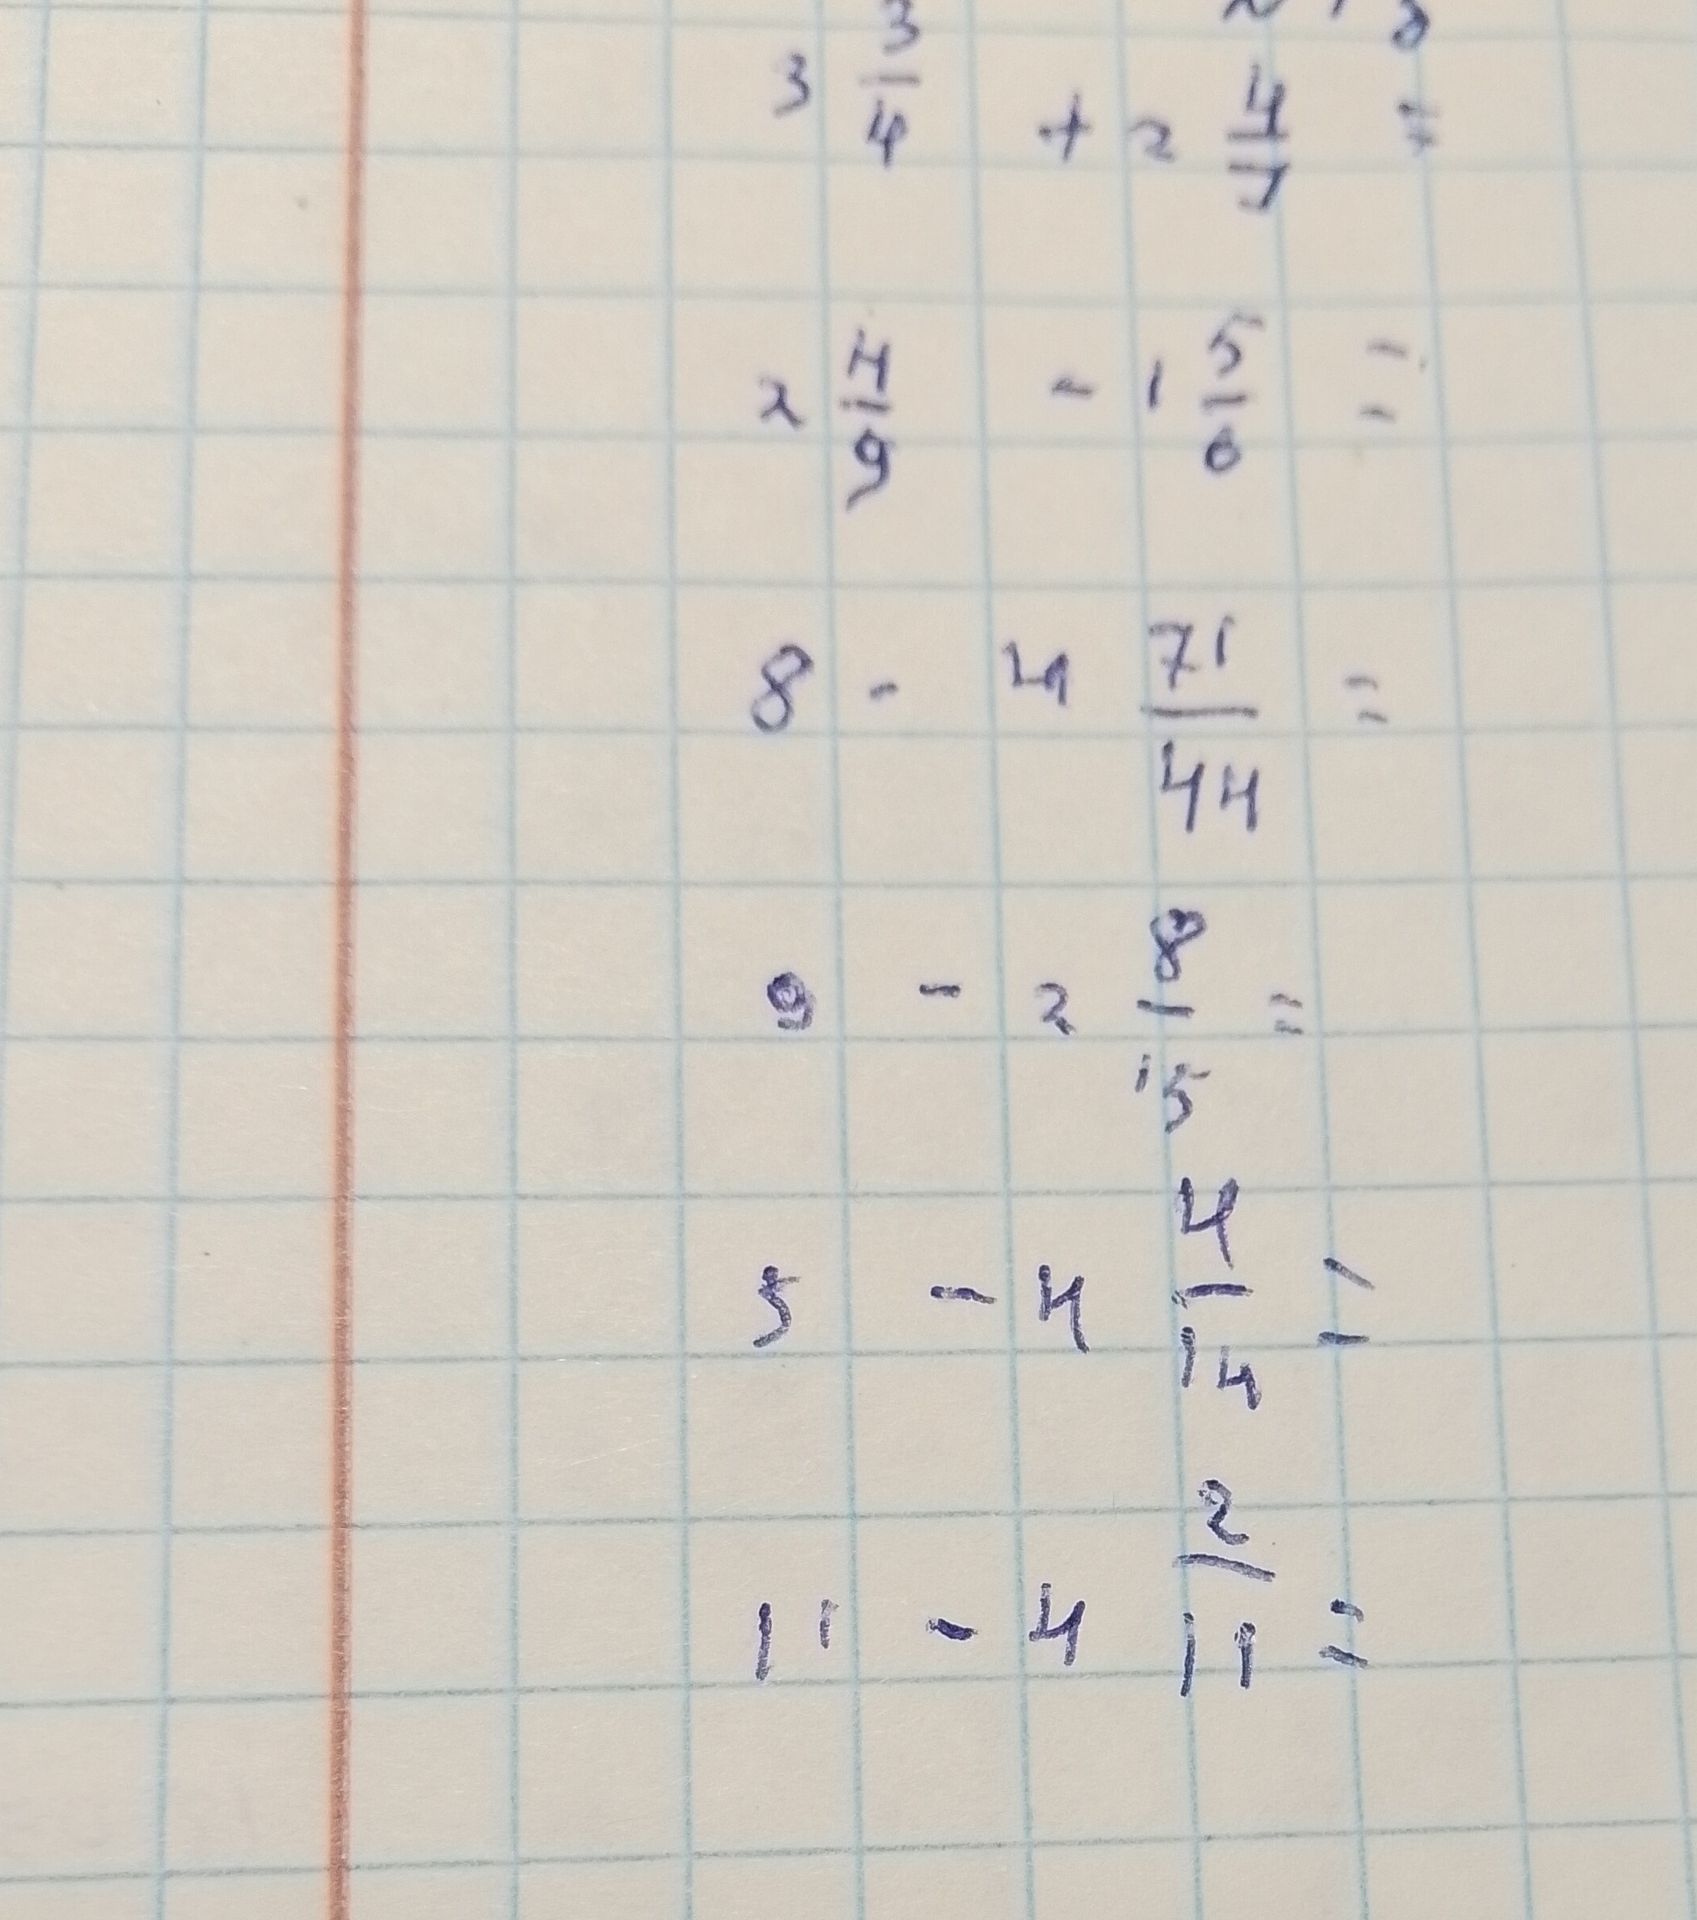 3 3/4 + 2 4/7 =
2 4/9 - 1 5/6 =
8 - 4 71/44 =
9 - 2 8/15 =
5 - 4 4/14 =
11 - 4 2/11 =